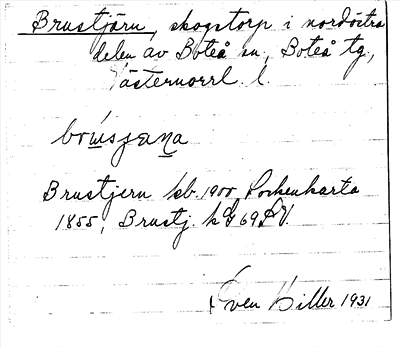 Brustjärn, skogstorp i nordöstra
delen av Boteå sn, Boteå tg,
Västernorrl. l.
Brustjern kb. 1900, Sockenkarta
1855, Brustj. kG 69 SV.
Sven Hiller 1931